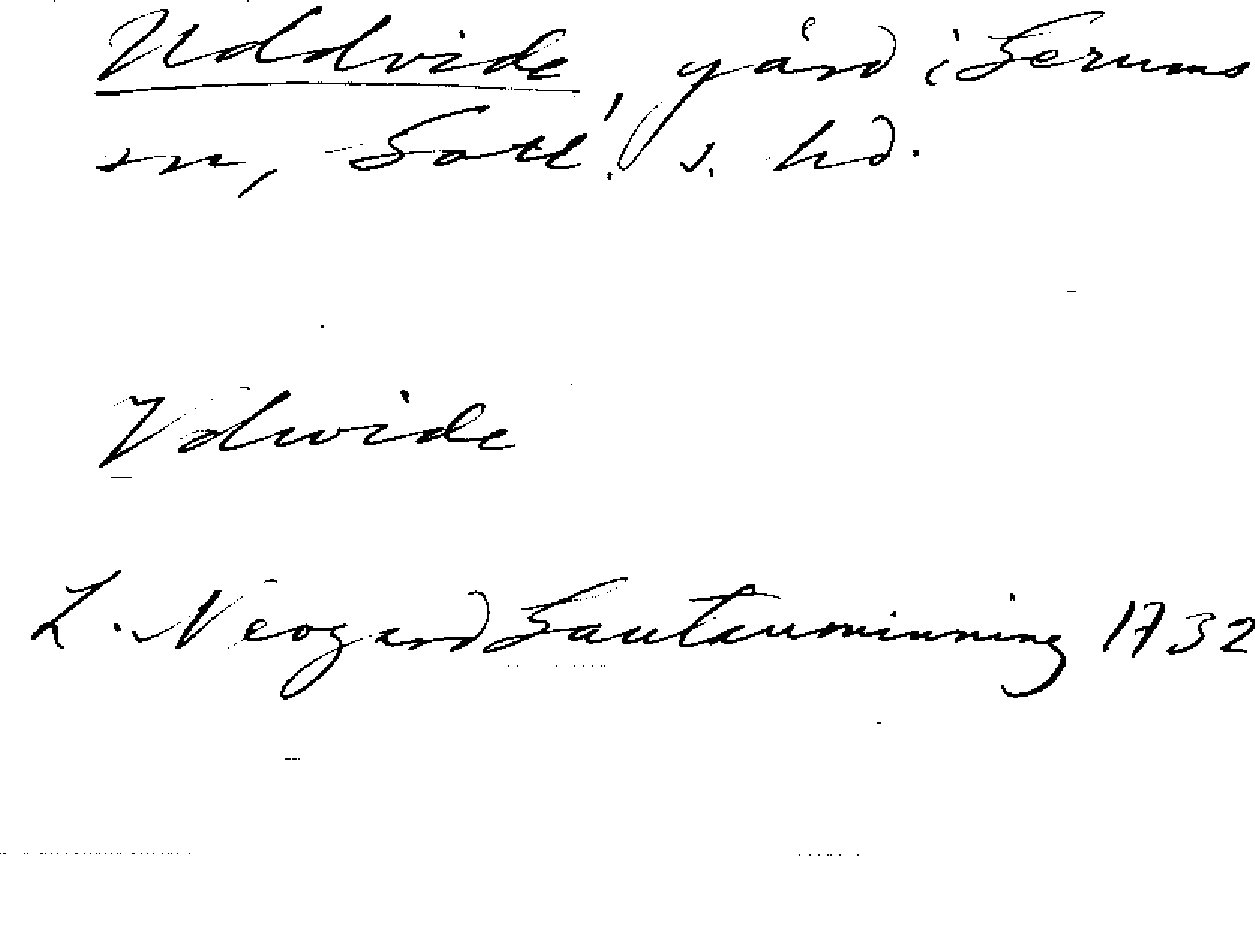 Uddvide, gård i Gerums
sn, Gotl. s. hd.
Vdwide
L. Neogard Gautauminning 1732